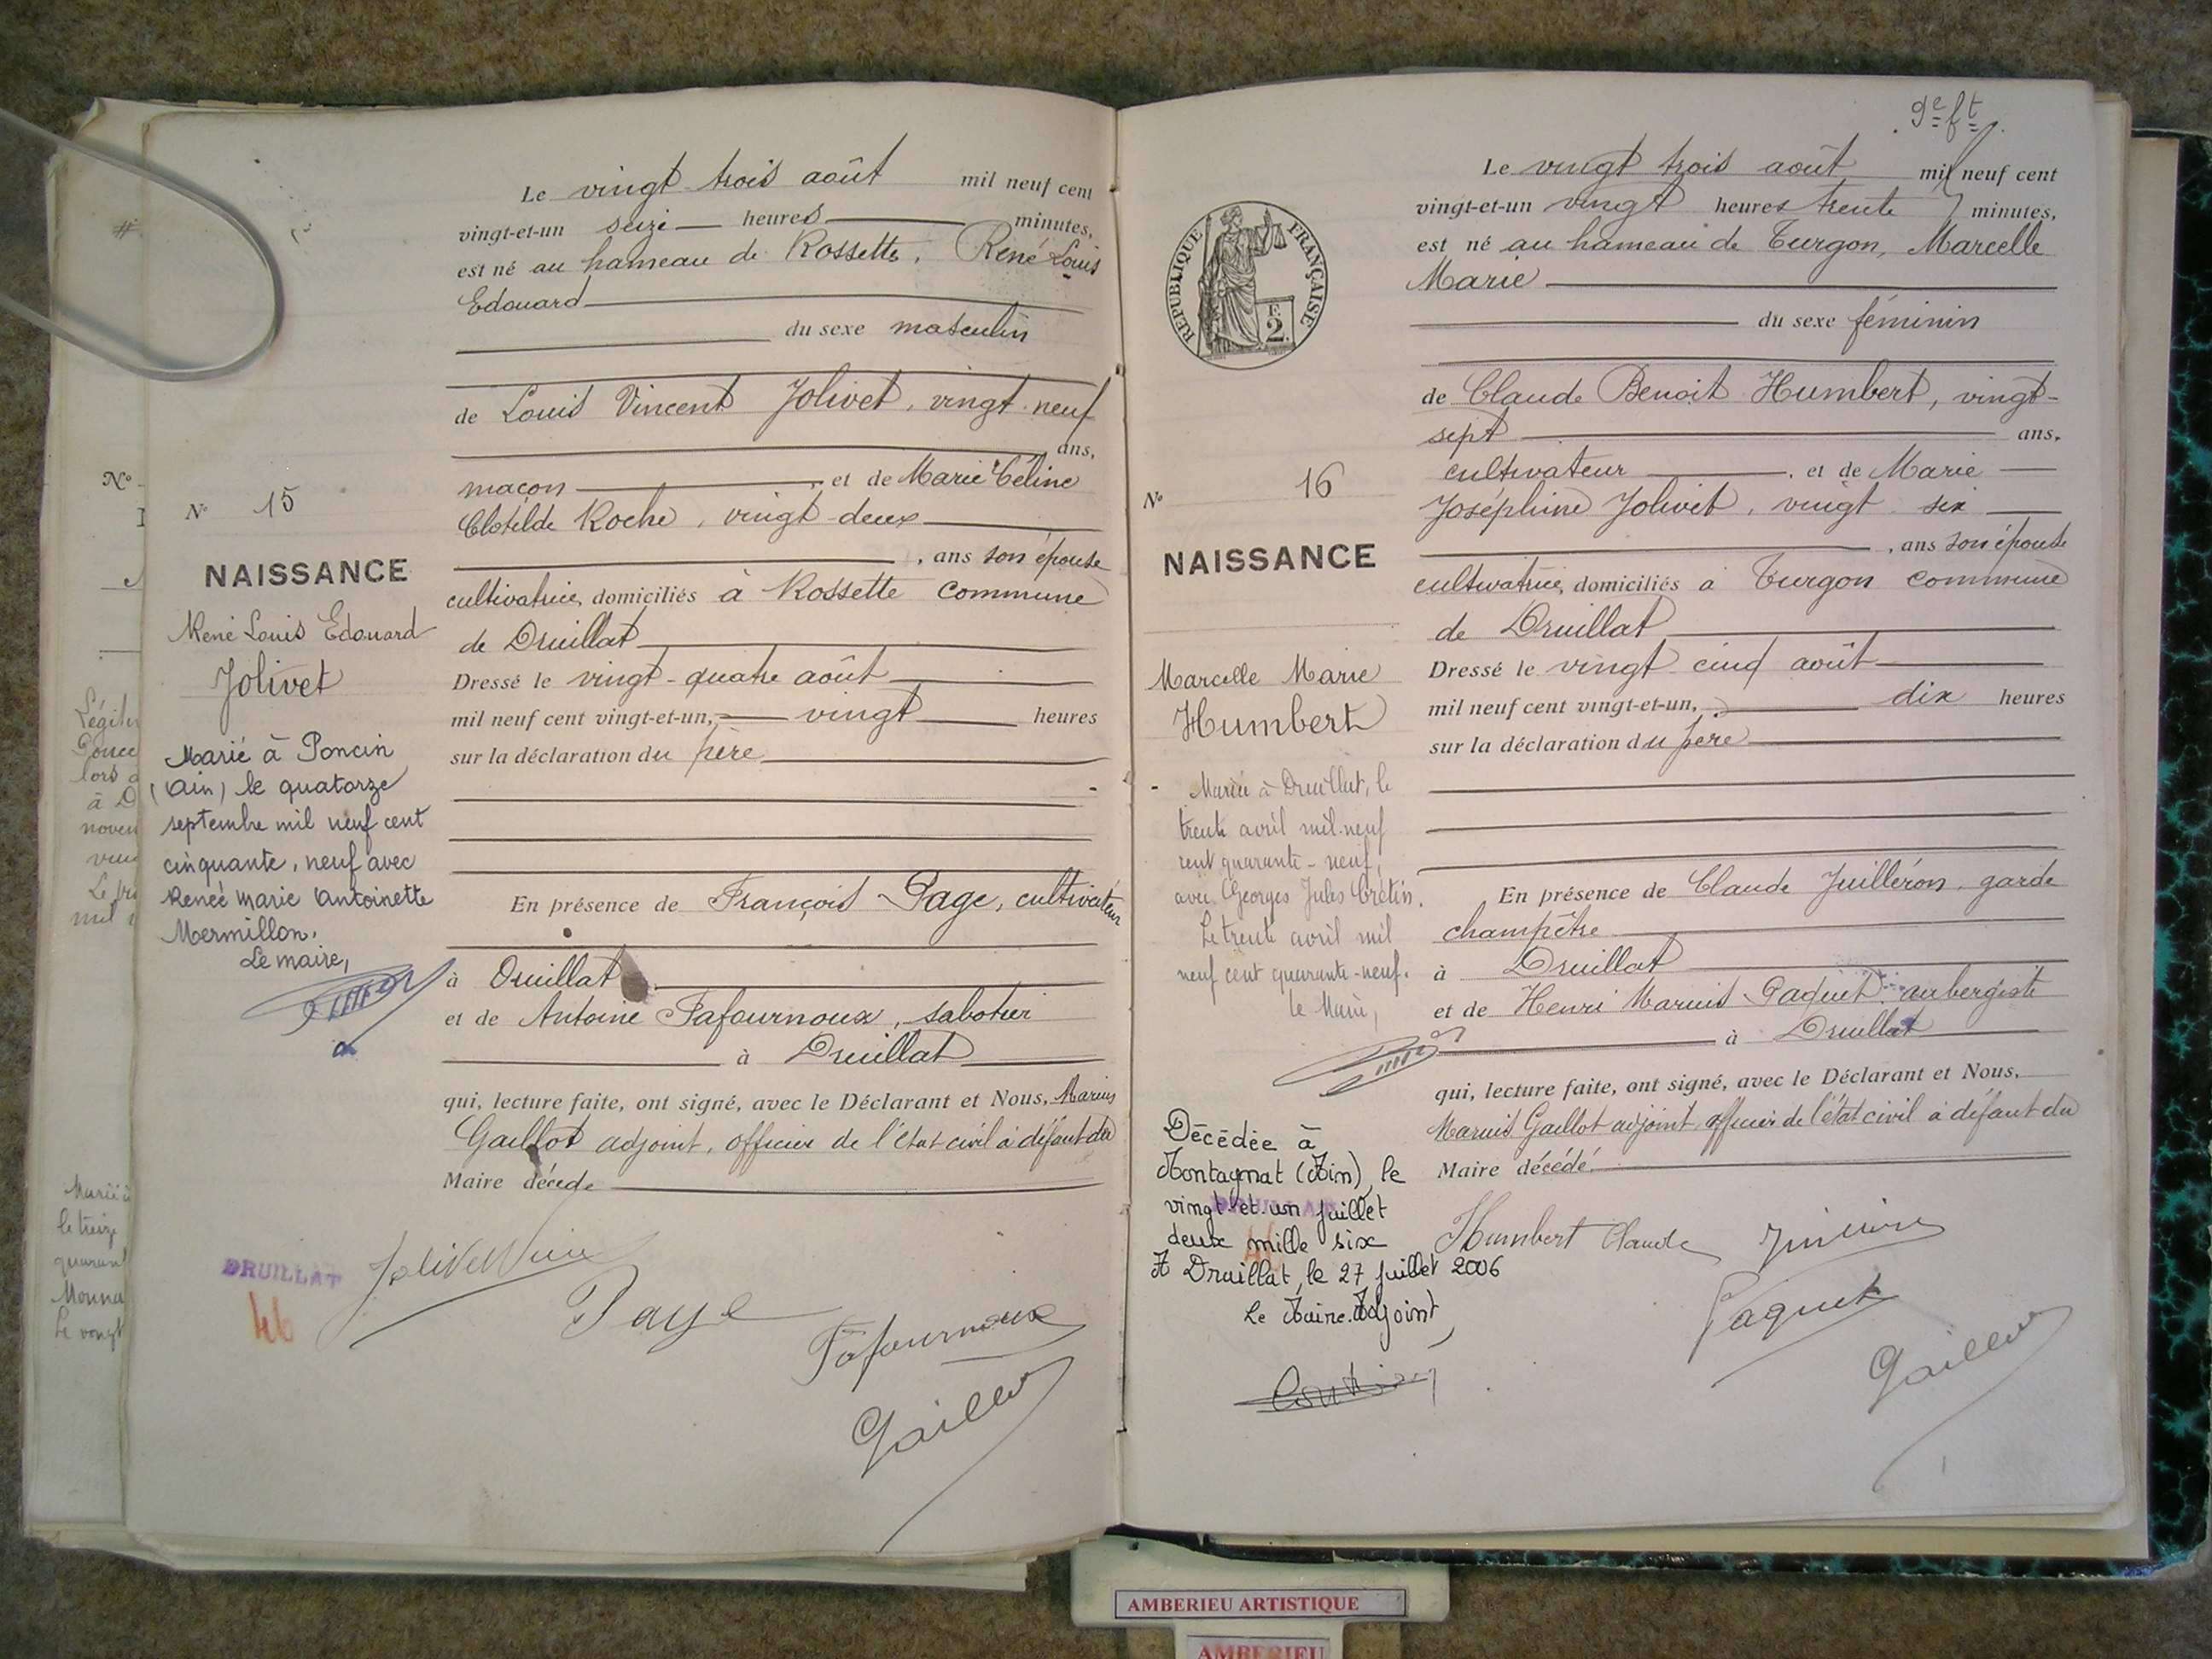 Le vingt trois août mil neuf cent
vingt-et-un seize heures minutes,
est né au hameau de Rossette, René Louis
Edouard
du sexe masculin
de Louis Vincent Jolivet, vingt-neuf
ans,
maçon, et de Marie Céline
Clotilde Roche, vingt-deux
, ans son épouse
cultivatrice, domiciliés à Rossette commune
de Druillat
Dressé le vingt-quatre août
mil neuf cent vingt-et-un, vingt heures
sur la déclaration du père
En présence de François Page, cultivateur
à Druillat
et de Antoine Pafournoux, sabotier
à Druillat
qui, lecture faite, ont signé, avec le Déclarant et Nous, Marius
Gaillot adjoint, officier de l'état civil à défaut du
Maire décédé
Page
Pafournoux
N° 15
NAISSANCE
René Louis Edouard
Jolivet
Marié à Poncin
(Ain) le quatorze
septembre mil neuf cent
cinquante, neuf avec
Renée Marie Antoinette
Mermillon.
Le maire,
DRUILLAT
46
N°
9e ft
Le vingt trois août mil neuf cent
vingt-et-un vingt heures trente minutes,
est né au hameau de Turgon, Marcelle
Marie
du sexe féminin
de Claude Benoit Humbert, vingt-
sept ans,
cultivateur, et de Marie
Joséphine Jolivet, vingt six
, ans son épouse
cultivatrice, domiciliés à Turgon commune
de Druillat
Dressé le vingt cinq août
mil neuf cent vingt-et-un, dix heures
sur la déclaration du père
En présence de Claude Juilléron, garde
champêtre
à Druillat
et de Henri Marius Paquet aubergiste
à Druillat
qui, lecture faite, ont signé, avec le Déclarant et Nous,
Marius Gaillot adjoint, officier de l'état civil à défaut du
Maire décédé.
Humbert Claude
Paquet
REPUBLIQUE FRANÇAISE
2
N° 16
NAISSANCE
Marcelle Marie
Humbert
Mariée à Druillat, le
trente avril mil-neuf
cent quarante-neuf,
avec Georges Jules Crétin.
Le trente avril mil
neuf cent quarante-neuf.
Le Maire,
Décédée à
Montagnat (Ain), le
vingt-et-un juillet
deux mille six
A Druillat, le 27 juillet 2006
Le Maire-Adjoint,
DRUILLAT
AMBERIEU ARTISTIQUE
AMBERIEU